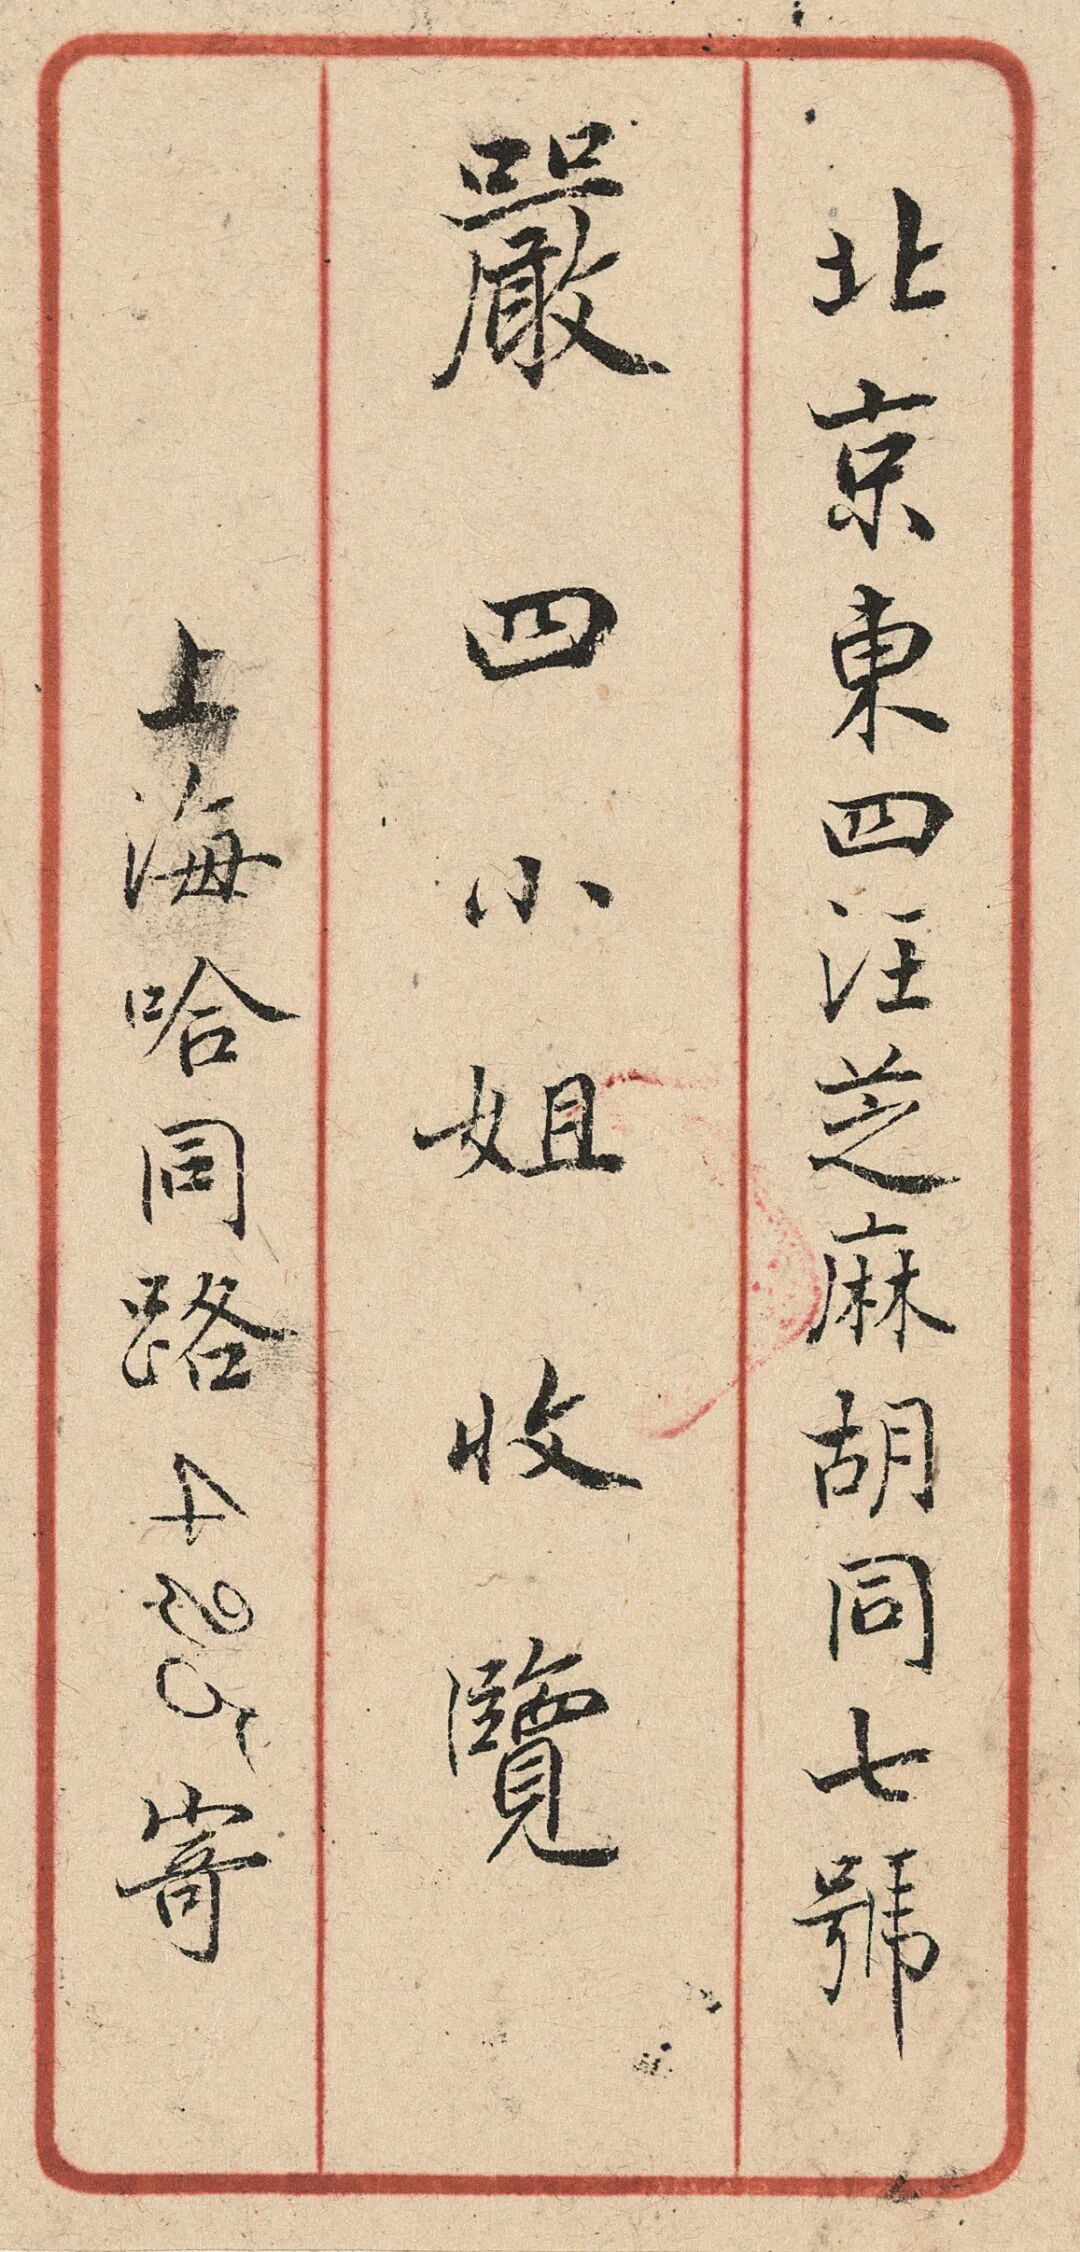 北京東四汪芝麻胡同七號
嚴四小姐收覽
上海哈同路420寄